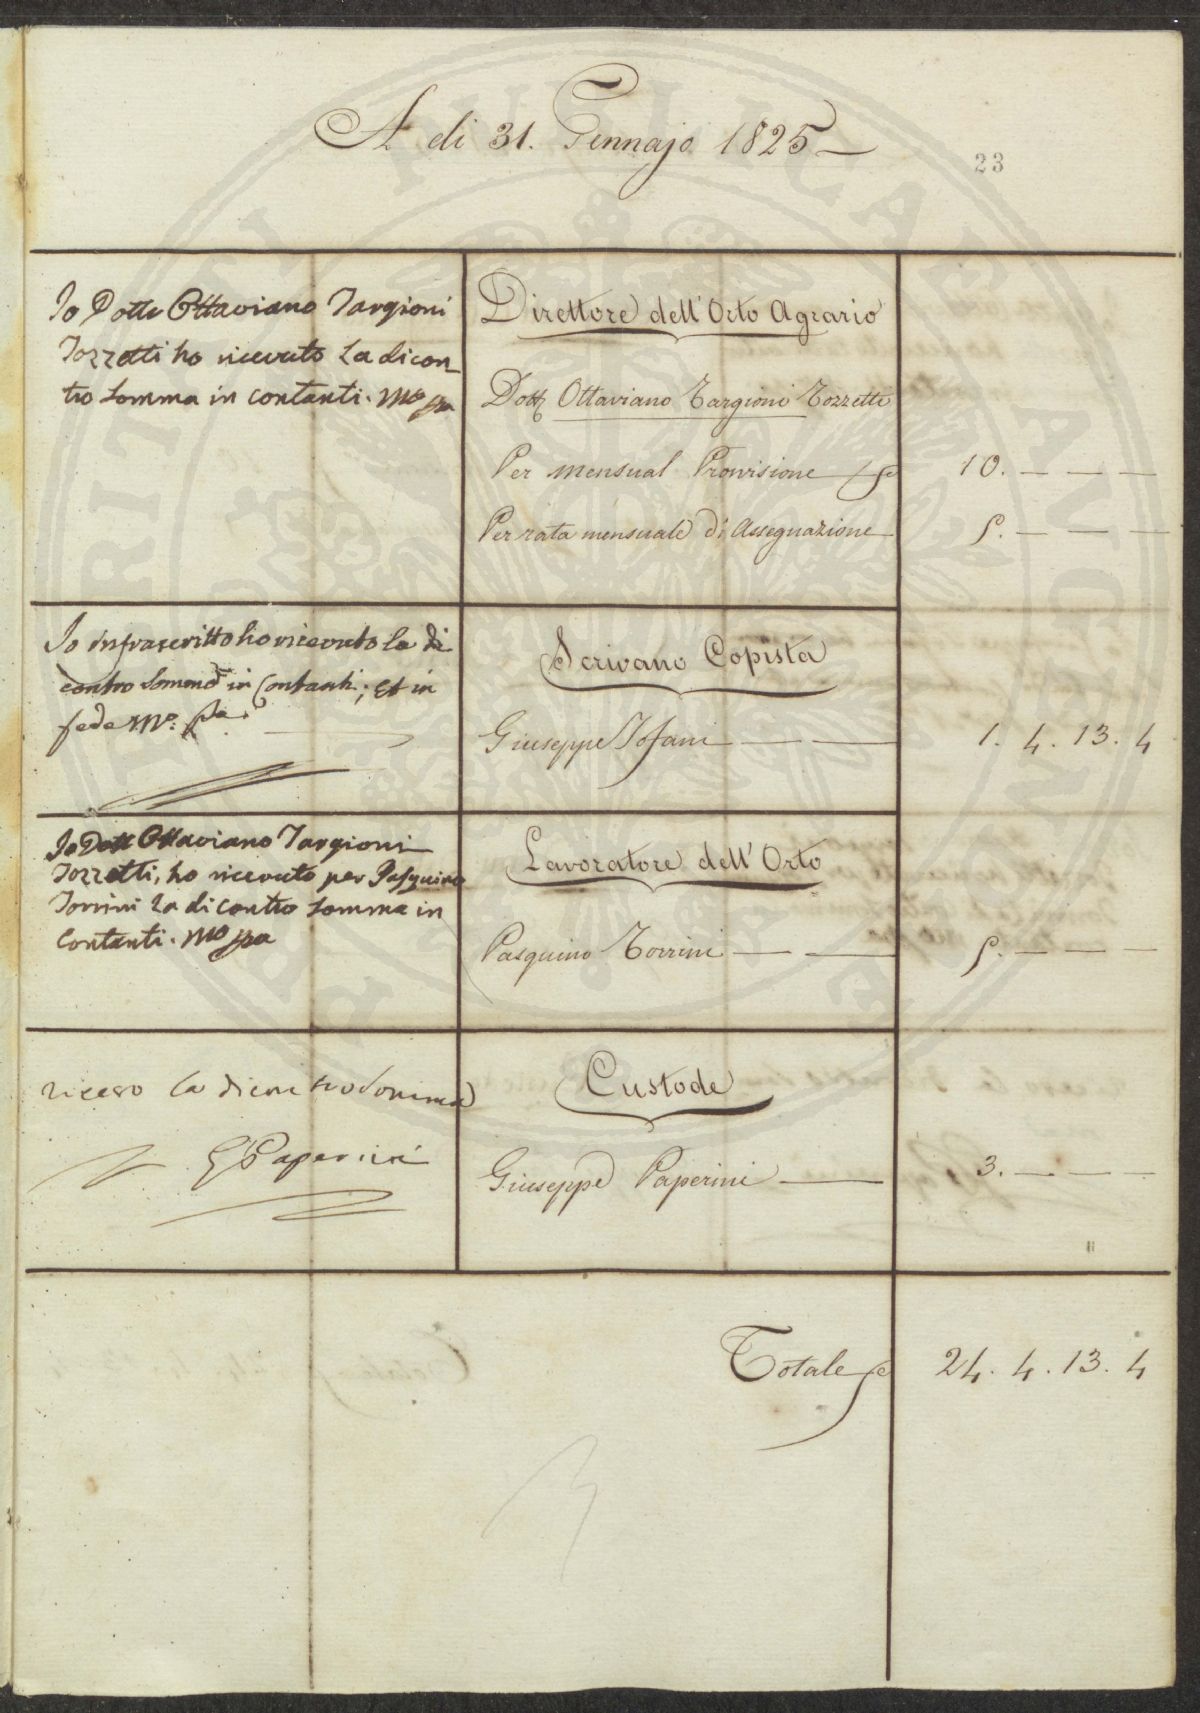 A di 31. Gennajo 1825
23
Io Dotte Ottaviano Targioni
Tozzetti ho ricevuto La dicon_
tro Somma in contanti. Mo pa
Direttore dell'Orto Agrario
Dott Ottaviano Targioni Tozzetti
Per mensual Provisione 10. — — —
Per rata mensuale di Assegnazione 5. — — —
Io infrascritto ho ricevuto la di
contro Somma in Contanti; Et in
fede Mo. pa.
Scrivano Copista
Giuseppe Tofani — — 1. 4. 13. 4
Io Dott Ottaviano Targioni
Tozzetti, ho ricevuto per Pasquino
Torrini La di Contro Somma in
Contanti. Mo pa
Lavoratore dell'Orto
Pasquino Torrini — — 5. — — —
ricevo la dicontro Somma
G Paperini
Custode
Giuseppe Paperini — 3. — — —
Totale 24. 4. 13. 4